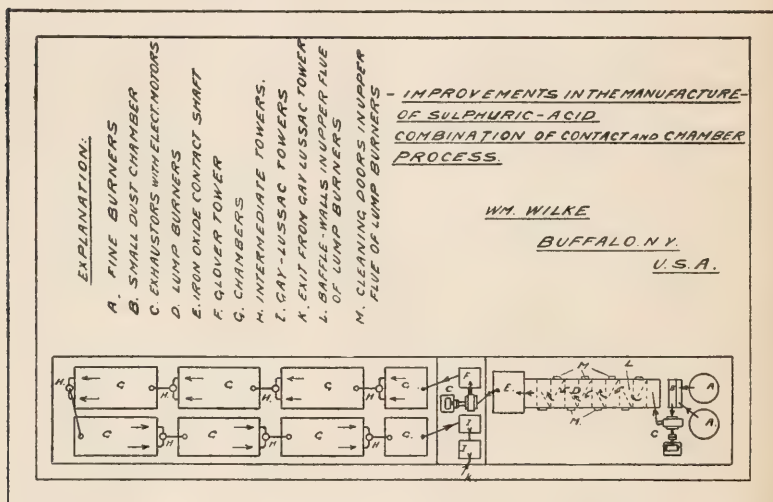 EXPLANATION:
A. FINE BURNERS
B. SMALL DUST CHAMBER
C. EXHAUSTORS WITH ELECT. MOTORS
D. LUMP BURNERS
E. IRON OXIDE CONTACT SHAFT
F. GLOVER TOWER
G. CHAMBERS
H. INTERMEDIATE TOWERS.
I. GAY-LUSSAC TOWERS
K. EXIT FROM GAY LUSSAC TOWER
L. BAFFLE-WALLS IN UPPER FLUE
OF LUMP BURNERS
M. CLEANING DOORS IN UPPER
FLUE OF LUMP BURNERS
- IMPROVEMENTS IN THE MANUFACTURE-
OF SULPHURIC-ACID
COMBINATION OF CONTACT AND CHAMBER
PROCESS.
WM. WILKE
BUFFALO. N.Y.
U.S.A.
H. G H G H G H G. C F E. M L D M. B A A. C
G H G H G H G. I I K